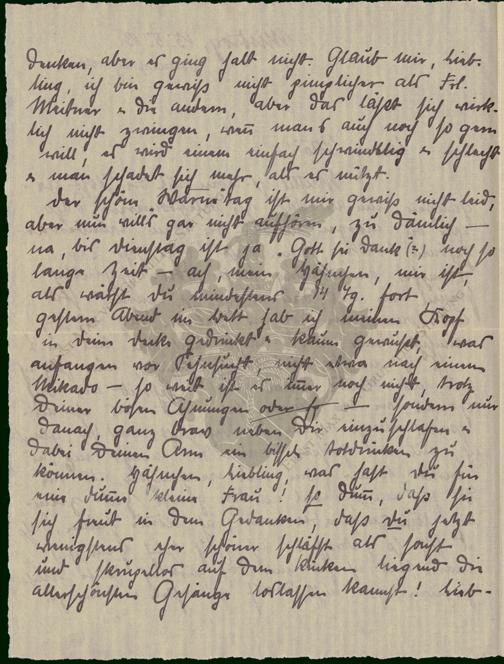 denken, aber es ging halt nicht. Glaub mir, Lieb-
ling, ich bin gewiß nicht pimplicher als Frl.
Meitner & die andern, aber das läßt sich wirk-
lich nicht zwingen, wenn man's auch noch so gern
will, es wird einem einfach schwindlig & schlecht
& man schadet sich mehr, als es nützt.
Der schöne Warnetag ist mir gewiß nicht leid,
aber nun will's gar nicht aufhören, zu dämlich —
na, bis Dienstag ist ja Gott sei Dank (?) noch so
lange Zeit — ach, mein Hähnchen, mir ist,
als wärst Du mindestens 14 Tg. fort
gestern Abend im Bett hab ich meinen Kopf
in deine Decke gedrückt & kaum gewußt, was
anfangen vor Sehnsucht, nicht etwa nach einem
Mikado — so weit ist es immer noch nicht, trotz
Deiner bösen Ahnungen oder — sondern nur
danach, ganz brav neben Dir einzuschlafen &
dabei Deinen Arm ein bissel totdrücken zu
können. Hähnchen, Liebling, was hast Du für
eine dumme kleine Frau! So dumm, daß sie
sich freut in dem Gedanken, daß Du jetzt
wenigstens eher schöner schläfst als sonst
und skrupellos auf dem Rücken liegend die
allerschönsten Gesänge loslassen kannst! Lieb-